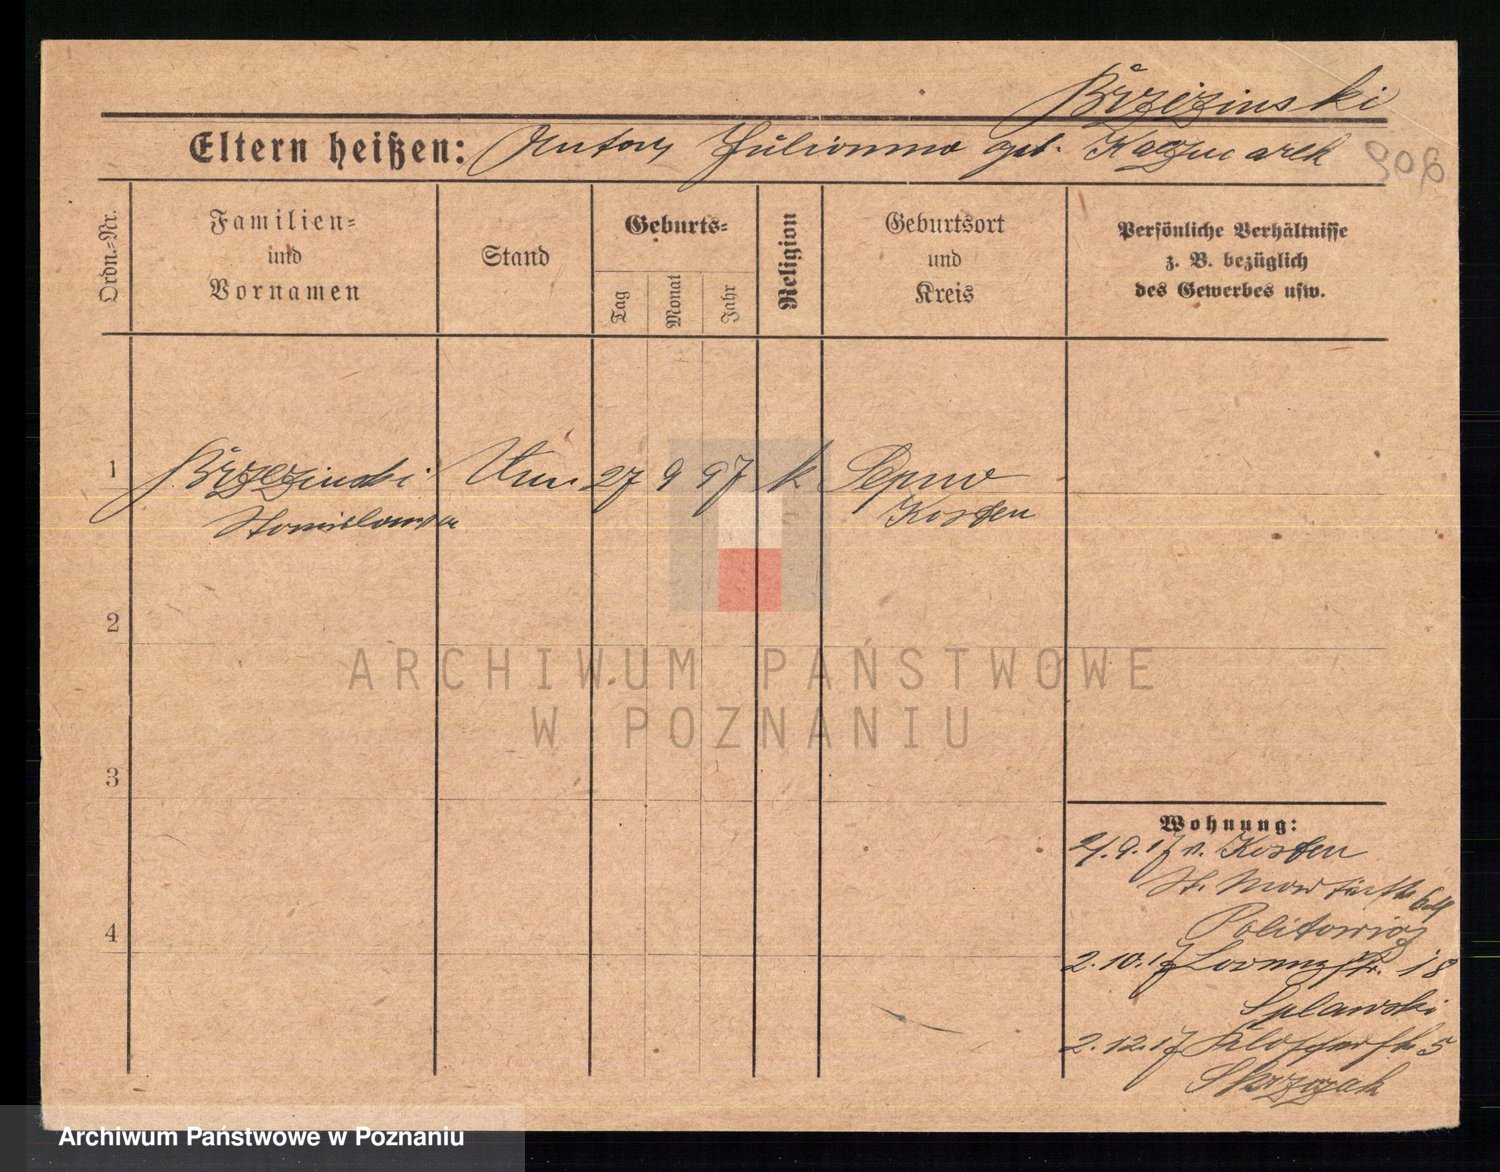 Brzezinski
Eltern heißen: Anton Julianna geb. Kaczmarek
Ordn.-Nr.
Familien-
und
Vornamen
Stand
Geburts-
Tag
Monat
Jahr
Religion
Geburtsort
und
Kreis
Persönliche Verhältnisse
z. B. bezüglich
des Gewerbes usw.
1 Brzezinski 27 9 97 k
Stanislawa Kosten
2
ARCHIWUM PAŃSTWOWE
W POZNANIU
3
Wohnung:
21.9.17 v. Kosten
St.
4
Politowicz
2.10.17 Lorenzstr. 18
Splawski
2.12.17 5
Skrzypczak
Archiwum Państwowe w Poznaniu